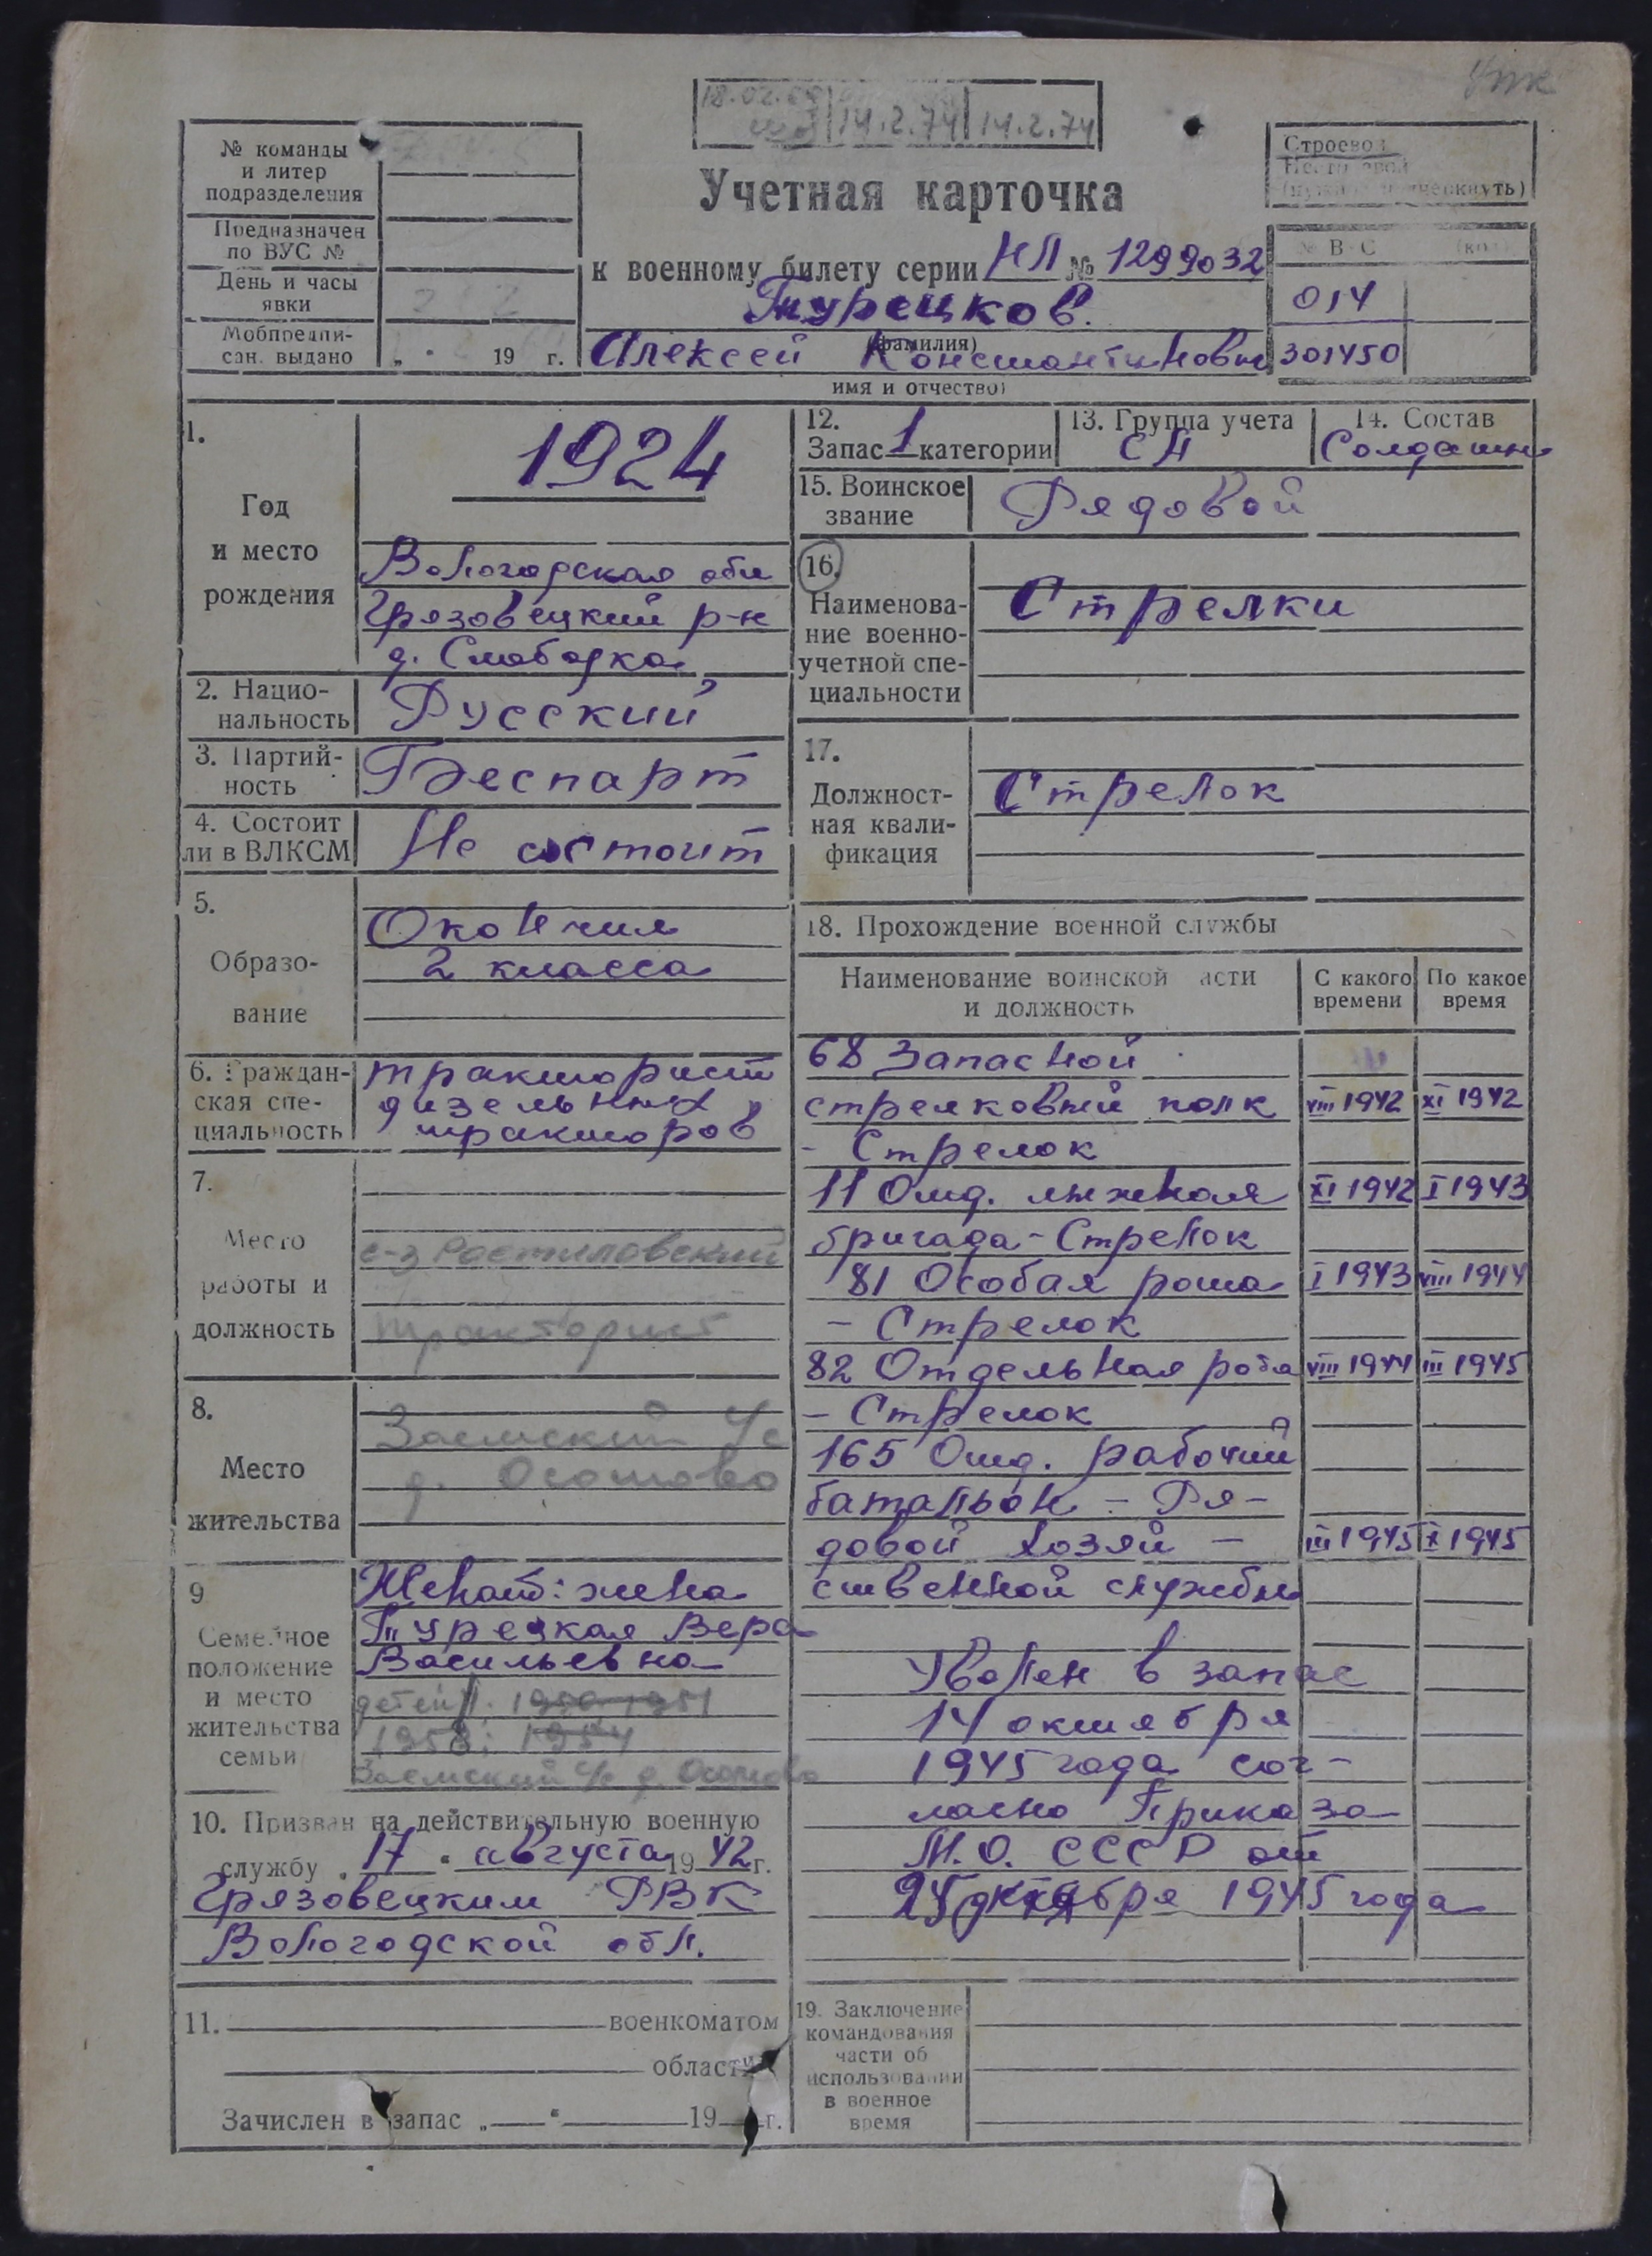 упк
18.02.69 14.2.74 14.2.74
№ команды
и литер
подразделения
Предназначен
по ВУС №
День и часы
явки
Мобпредпи-
сан. выдано „ " 19 г.
Строевой
Нестроевой
(нужное подчеркнуть)
Учетная карточка
к военному билету серии НЛ № 1299032
Турецков.
(фамилия)
Алексей Константинович
имя и отчество)
№ ВУС (код)
014
301450
1.
Год
и место
рождения
1924
Вологодская обл
Грязовецкий р-н
д. Слободка
2. Нацио-
нальность Русский
3. Партий-
ность Беспарт
4. Состоит
ли в ВЛКСМ Не состоит
5.
Образо-
вание
Окончил
2 класса
6. Граждан-
ская спе-
циальность
тракторист
дизельных
тракторов
7.
Место
работы и
должность
с-з Ростиловский
тракторист
8.
Место
жительства
Заемский с/с
д. Осотово
9
Семейное
положение
и место
жительства
семьи
Женат: жена
Турецкая Вера
Васильевна
детей 1950 1951
1953; 1954
Заемский с/с д. Осотово
10. Призван на действительную военную
службу „ 17 " августа 19 42 г.
Грязовецким РВК
Вологодской обл.
11. военкоматом
области
Зачислен в запас „ " 19 г.
12.
Запас 1 категории
13. Группа учета
СА
14. Состав
Солдатск
15. Воинское
звание Рядовой
16.
Наименова-
ние военно-
учетной спе-
циальности
Стрелки
17.
Должност-
ная квали-
фикация
Стрелок
18. Прохождение военной службы
Наименование воинской части
и должность
С какого
времени
По какое
время
68 Запасной
стрелковый полк VIII 1942 XI 1942
- Стрелок
11 Отд. лыжная XI 1942 I 1943
бригада - Стрелок
81 Особая рота I 1943 VIII 1944
- Стрелок
82 Отдельная рота VIII 1944 III 1945
- Стрелок
165 Отд. рабочий
батальон - Ря-
довой хозяй - III 1945 X 1945
ственной службы
Уволен в запас
14 октября
1945 года сог-
ласно Приказа
М.О. СССР от
25 октября 1945 года
19. Заключение
командования
части об
использовании
в военное
время